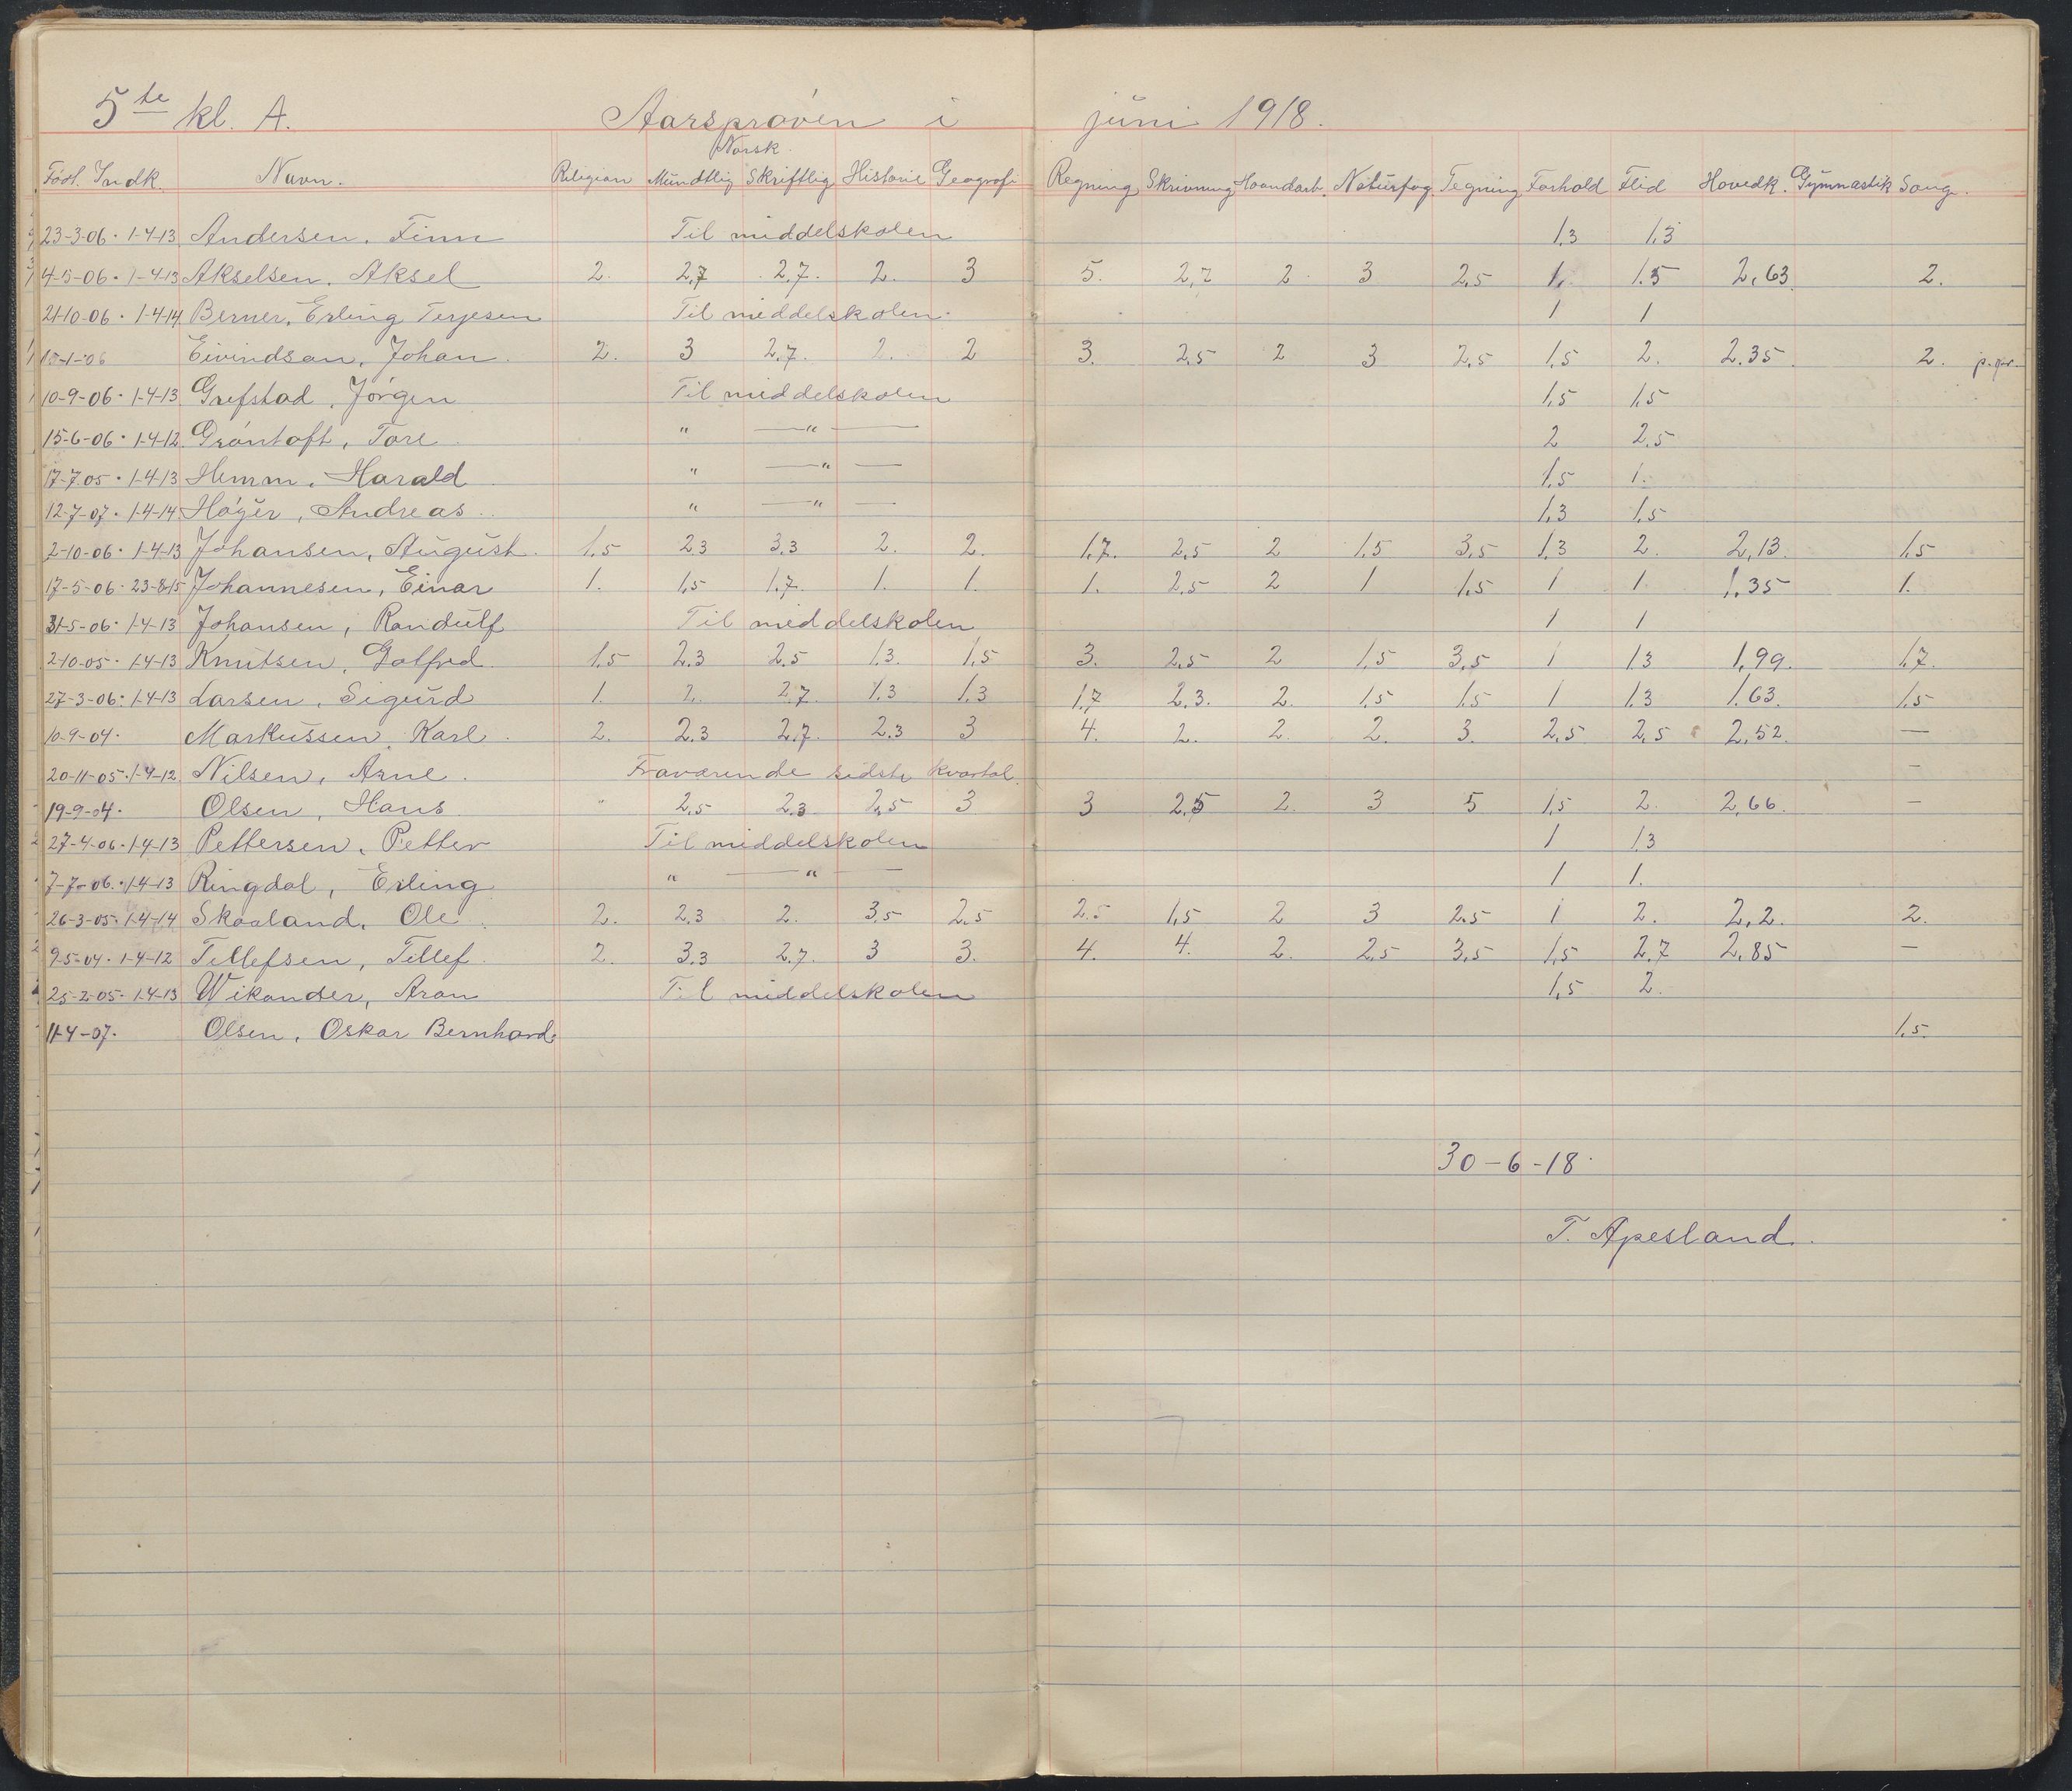 5te kl. A. Aarsprøven i juni 1918.
Norsk
Født. Indk. Navn. Religion Mundtlig Skriftlig Historie Geografi Regning Skrivning Haandarb. Naturfag. Tegning Forhold Flid Hovedk. Gymnastik Sang.
23-3-06. 1-4-13 Andersen, Finn Til middelskolen 1,3 1,3
4-5-06. 1-4-13 Akselsen, Aksel 2. 2,7 2,7. 2. 3 5. 2,2 2 3 2,5 1. 1.5 2,63 2.
21-10-06. 1-4-14 Berner, Erling Terjesen Til middelskolen. 1 1
Eivindsen, Johan. 2. 3 2,7. 2. 2 3. 2,5 2 3 2,5 1,5 2. 2.35 2.
10-9-06. 1-4-13 Grefstad, Jørgen Til middelskolen 1,5 1,5
15-6-06. 1-4-12. Grøntoft, Tore " —"— 2 2,5
17-7-05. 1-4-13 Hemm, Harald " —"— 1,5 1.
12-7-07. 1-4-14 Høyer, Andreas. " —"— 1,3 1,5
2-10-06. 1-4-13 Johansen, August. 1,5 2,3 3,3 2. 2. 1,7. 2,5 2 1,5 3,5 1,3 2. 2,13. 1,5
17-5-06. 23-8-15 Johannesen, Einar 1. 1,5 1,7. 1. 1. 1. 2,5 2 1 1,5 1 1. 1,35 1.
31-5-06. 1-4-13 Johansen, Randulf Til middelskolen 1 1
2-10-05. 1-4-13 Knutsen, Gotfred. 1,5 2,3 2,5 1,3. 1,5 3. 2,5 2 1,5 3,5 1 1,3 1,99. 1,7.
27-3-06. 1-4-13 Larsen, Sigurd 1. 2. 2,7. 1,3 1,3 1,7 2,3. 2. 1,5 1,5 1 1,3 1.63. 1,5
10-9-04. Markussen, Karl. 2. 2.3 2,7. 2.3 3 4. 2. 2. 2. 3. 2,5 2,5 2,52. —
20-11-05. 1-4-12. Nilsen, Arne. Fraværende sidste kvartal. —
19-9-04. Olsen, Hans. " 2,5 2,3 2,5 3 3 2,5 2. 3 5 1,5 2. 2,66. —
27-4-06. 1-4-13 Pettersen, Petter Til middelskolen 1 1,3
7-7-06. 1-4-13 Ringdal, Erling " —"— 1 1.
26-3-05. 1-4-14 Skaaland, Ole. 2. 2.3 2. 3,5 2,5 2,5 1,5 2 3 2,5 1 2. 2,2. 2.
9-5-04. 1-4-12 Tellefsen, Tellef. 2. 3,3 2,7. 3 3. 4. 4. 2. 2,5 3,5 1,5 2,7 2,85 —
25-2-05. 1-4-13 Wikander, Aron Til middelskolen 1,5 2.
11-4-07. Olsen, Oskar Bernhard. 1,5.
30-6-18.
T. Apesland.